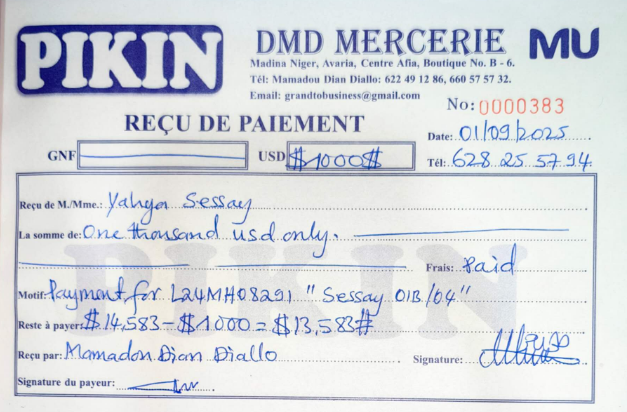 PIKIN
DMD MERCERIE MU
Madina Niger, Avaria, Centre Afia, Boutique No. B - 6.
Tél: Mamadou Dian Diallo: 622 49 12 86, 660 57 57 32.
Email: grandtobusiness@gmail.com
No: 0000383
REÇU DE PAIEMENT
Date: 01/09/2025
GNF USD $1000#
Tél: 628 25 57 94
Reçu de M./Mme.: Yahya Sessay
La somme de: One thousand usd only.
Frais: Paid
Motif: Payment for L24MH08291 "Sessay OIB/04"
Reste à payer: $14,583-$1000=$13,583#
Reçu par: Mamadou Dian Diallo
Signature:
Signature du payeur:
PIKIN